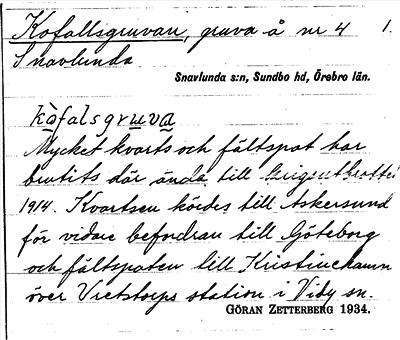 Kofallsgruvan, gruva å nr 4 1.
Snavlunda
Snavlunda s:n, Sundbo hd, Örebro län.
kòfalsgruva
Mycket kvarts och fältspat har
brutits där ända till krigsutbrottet
1914. Kvartsen kördes till Askersund
för vidare befordran till Göteborg
och fältspaten till Kristinehamn
över Vretstorps station i Viby sn.
GÖRAN ZETTERBERG 1934.